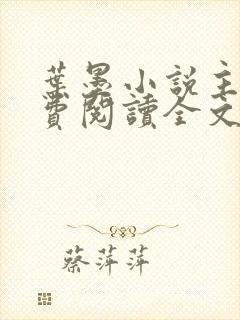 葉墨小說主
費閱讀全文
蔡萍萍